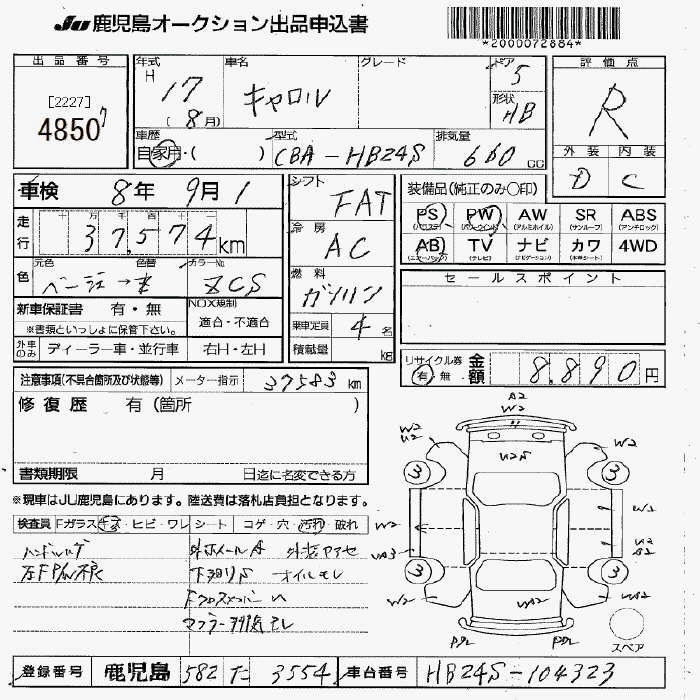 JU 鹿児島オークション出品申込書
*2000072884*
出品番号
[2227]
48507
年式 H 17 (8月)
車名 キャロル
グレード
ドア 5
形状 HB
評価点
R
外装 内装
D C
車歴 自家用・( )
型式 CBA-HB24S
排気量 660 CC
車検 8年 9月 1
走行 十 万 千 百 十
37,574km
シフト FAT
冷房 AC
燃料 ガソリン
乗車定員 4名
積載量 kg
装備品(純正のみ○印)
PS PW AW SR ABS
(パワステ) (パワーウインド) (アルミホイル) (サンルーフ) (アンチロック)
AB TV ナビ カワ 4WD
(エアーバック) (テレビ) (ナビゲーション) (本革シート)
色 元色 色替 カラーNo.
ZCS
セールスポイント
新車保証書 有・無
※書類といっしょに保管下さい。
NOX規制
適合・不適合
外車のみ ディーラー車・並行車 右H・左H
リサイクル券 有 無 金額 8.890円
注意事項(不具合箇所及び状態等) メーター指示 37583 km
修復歴 有(箇所 )
書類期限 月 日迄に名変できる方
※現車はJU鹿児島にあります。陸送費は落札店負担となります。
検査員 Fガラス キズ・ヒビ・ワレ シート コゲ・穴・汚れ・破れ
オイルモレ
A2
W2
W2
U2
W2
U2S
3
3
W2
U1
U2
3
3
W2
W2
スペア
登録番号 鹿児島 582 た 3554 車台番号 HB24S-104323